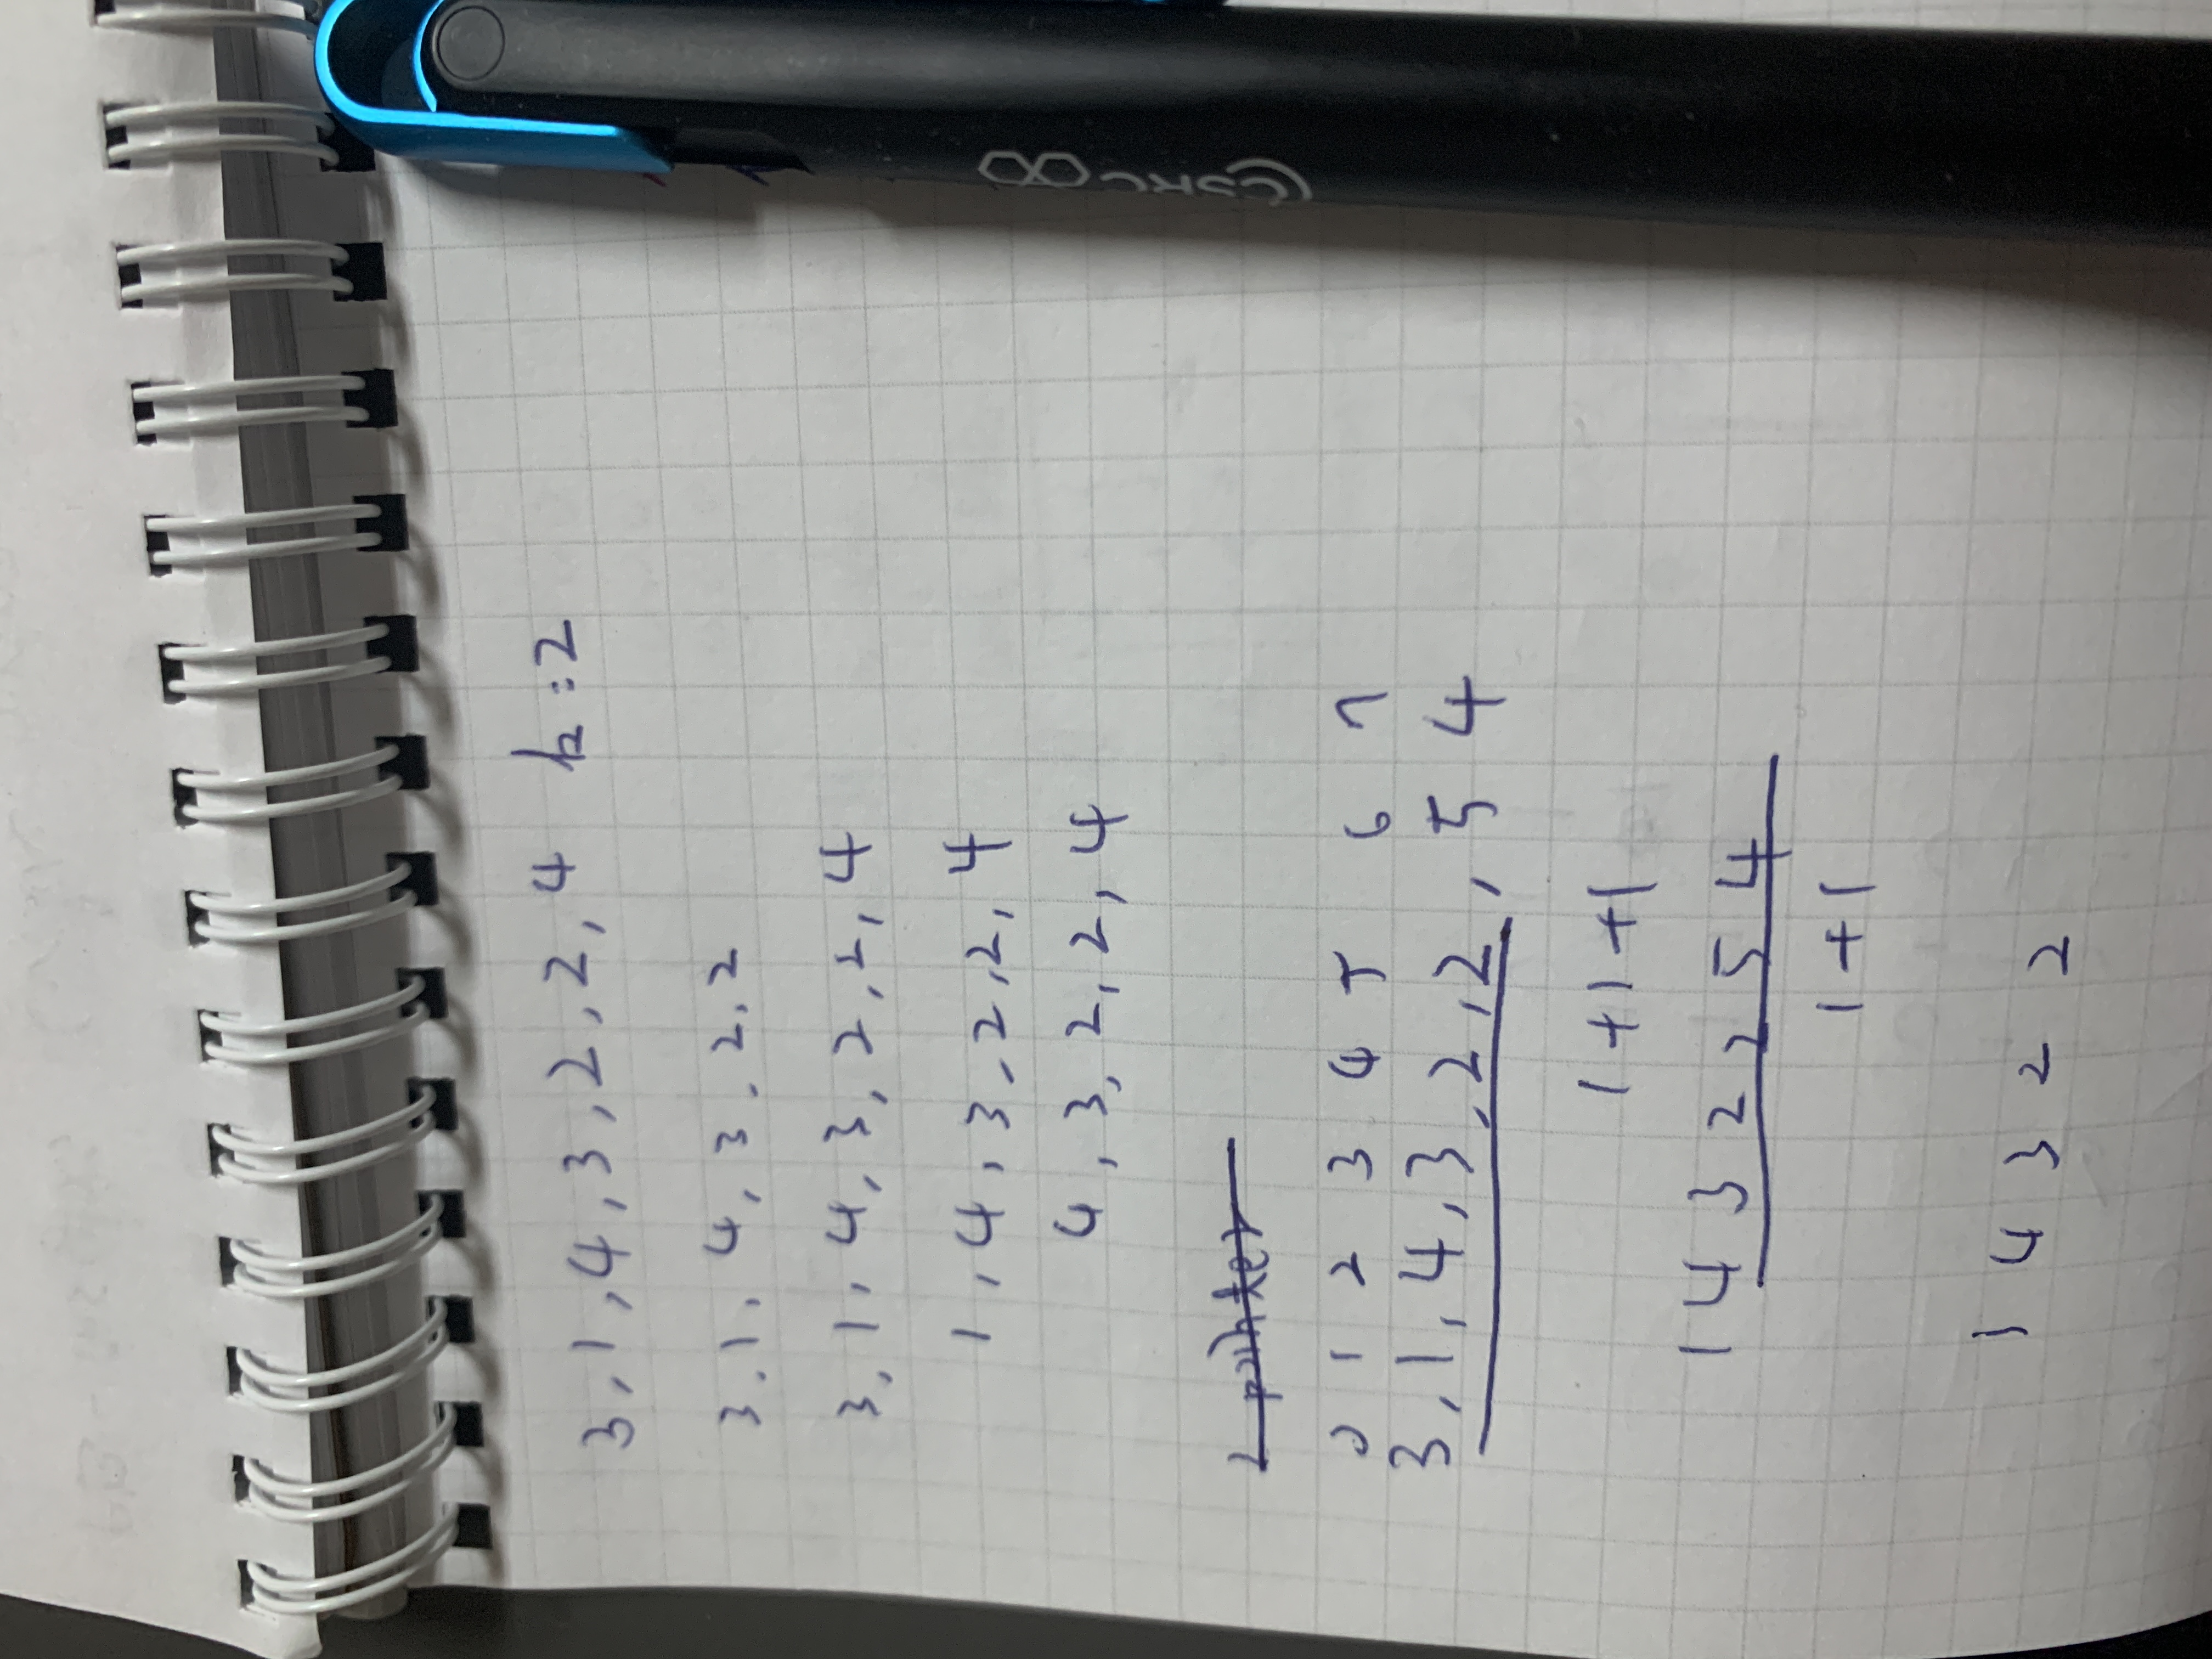 3, 1, 4, 3, 2, 2, 4 k:2
3. 1, 4, 3. 2. 2
3, 1, 4, 3, 2, 2, 4
1, 4, 3, 2, 2, 4
4, 3, 2, 2, 4
2 pointer
0 1 2 3 4 5 6 7
3, 1, 4, 3, 2, 2, 5 4
1+1+1
1 4 3 2 2 5 4
1+1
1 4 3 2 2